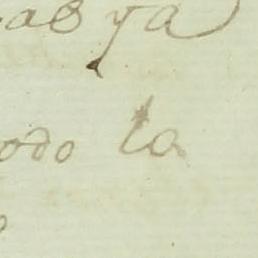 as ya
odo la